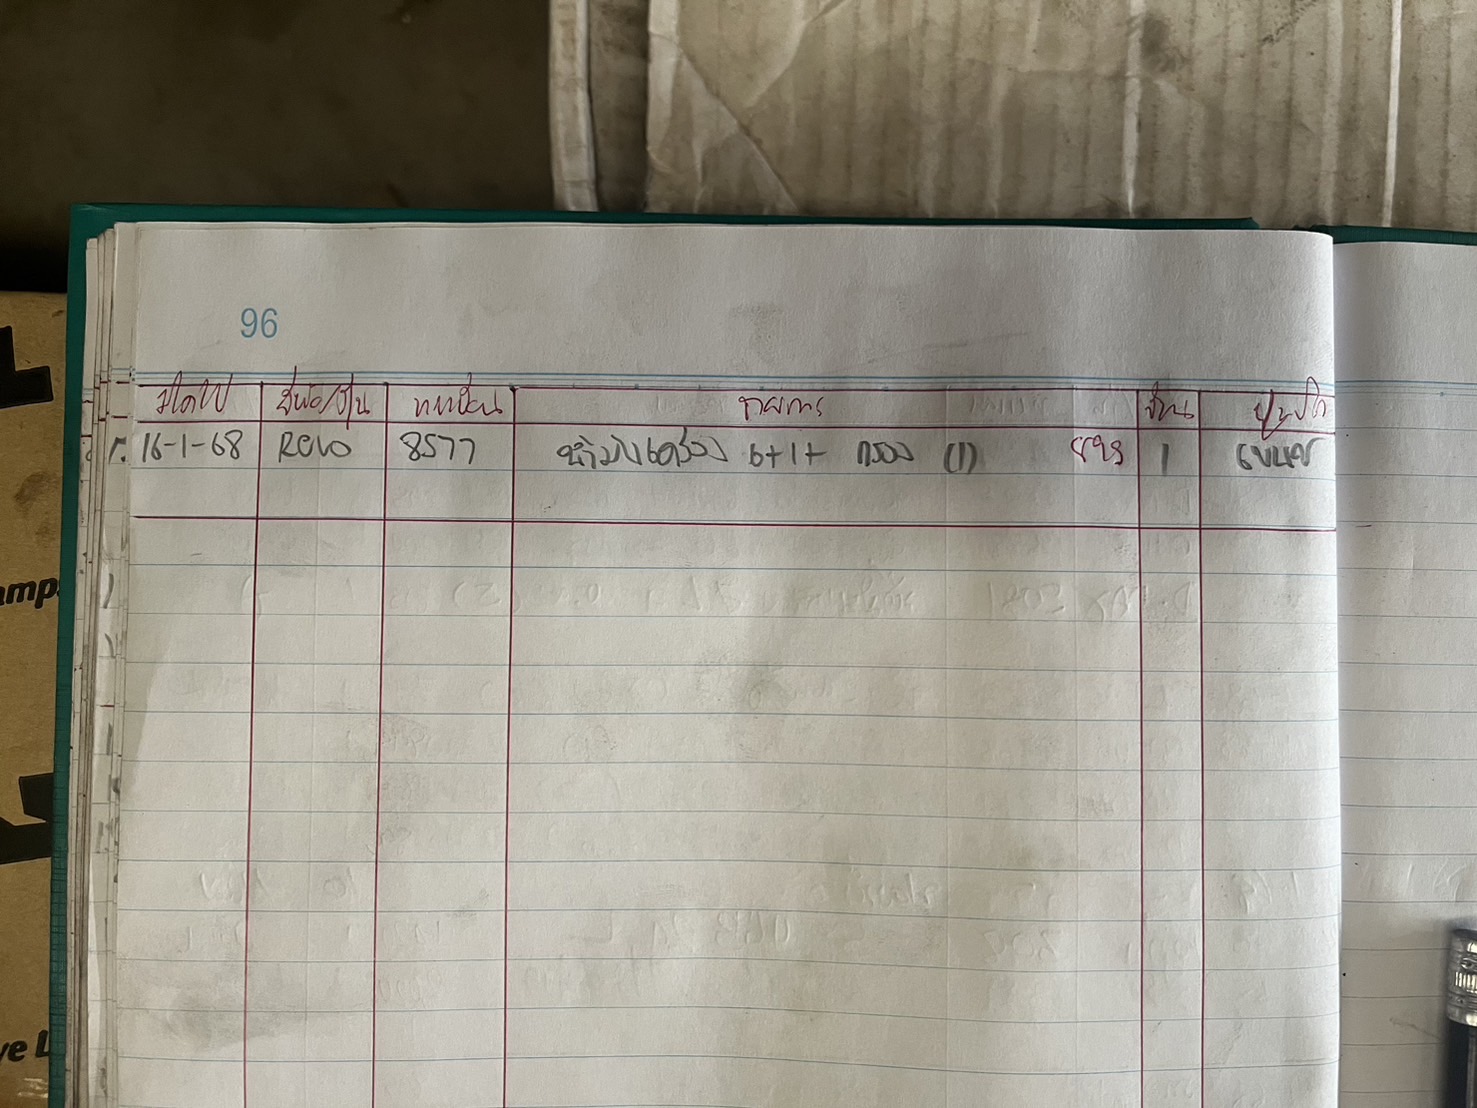 96
ว/ด/ป ยี่ห้อ/รุ่น ทะเบียน รายการ จำนวน
16-1-68 Revo 8577 น้ำมันเครื่อง 6+1+ กรอง (1) 1
amp
ye L